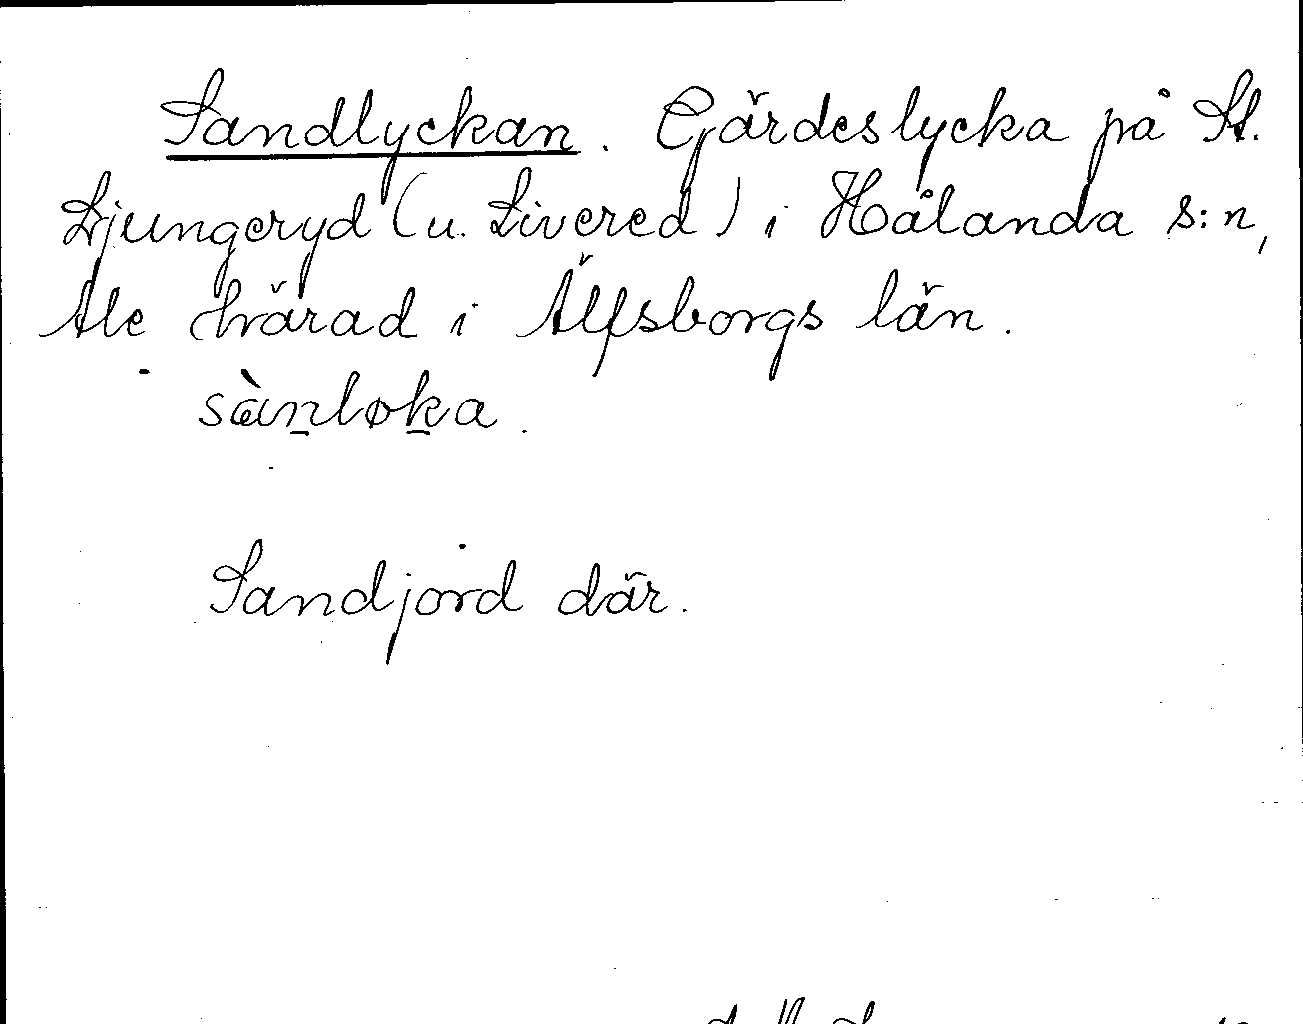 Sandlyckan. Gärdeslycka på St.
Ljungeryd (u. Livered) i Hålanda s:n,
Ale härad i Älfsborgs län.
sànløka.
Sandjord där.